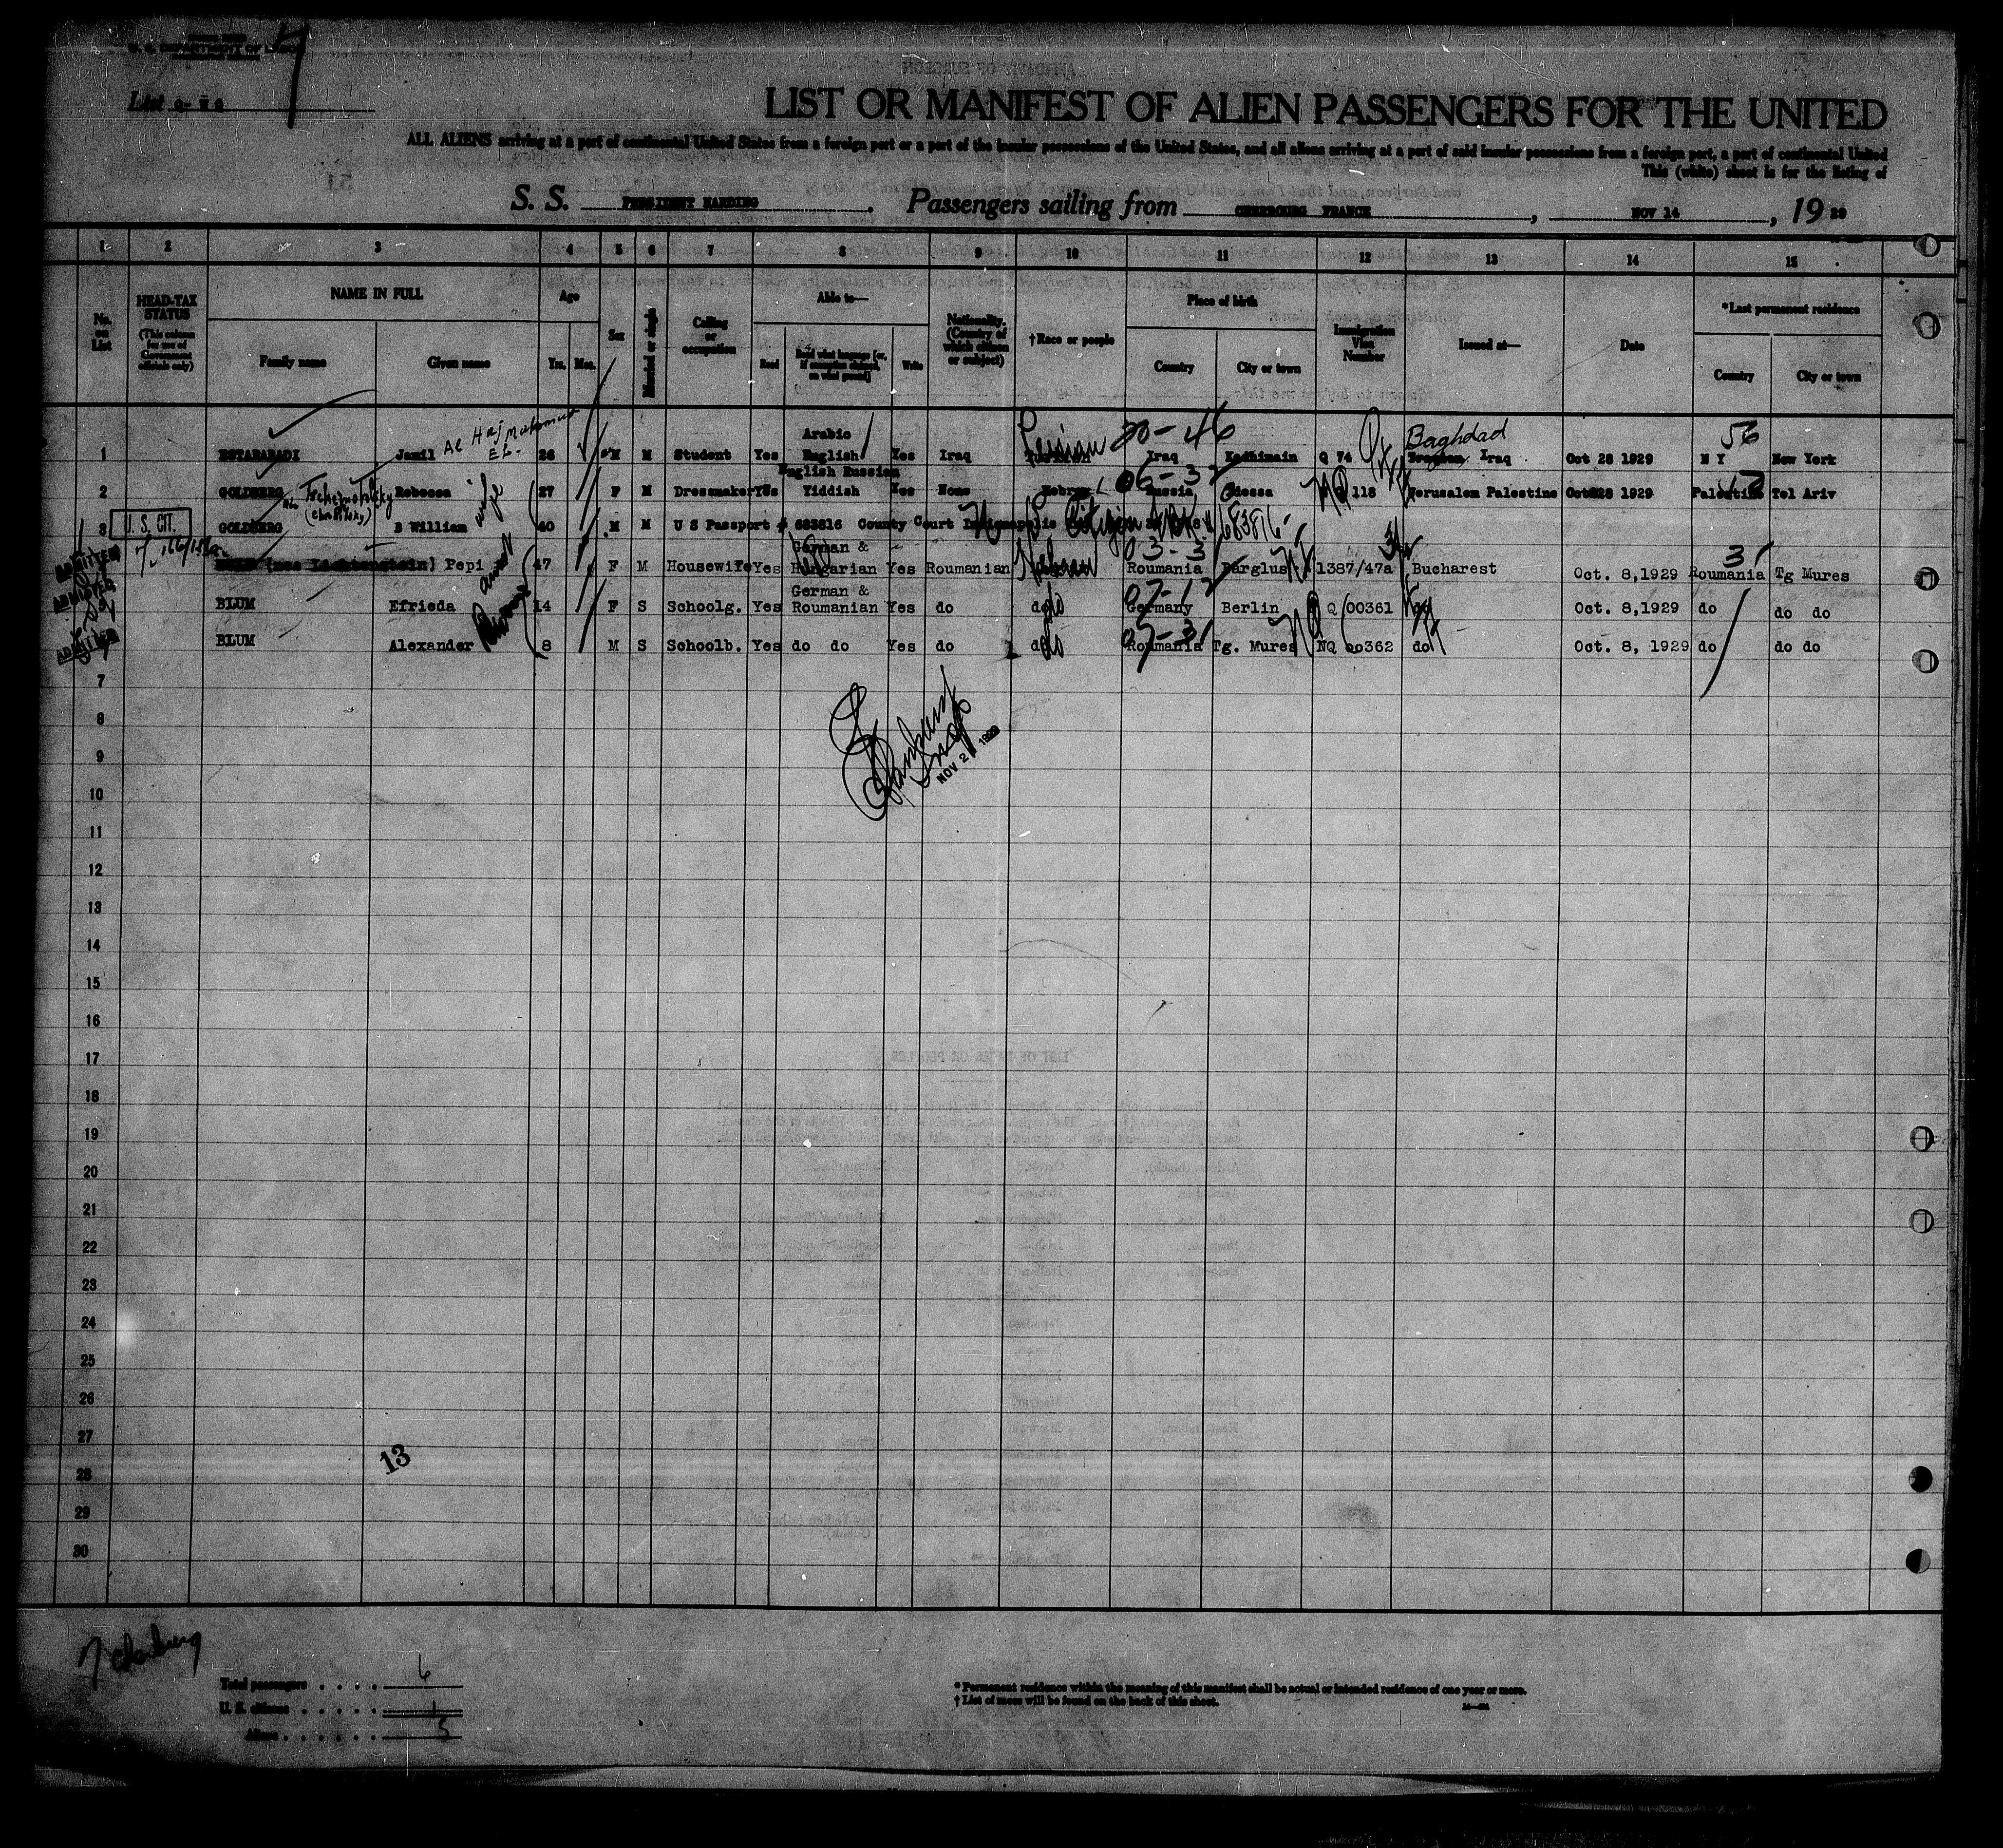 U. S. DEPARTMENT OF LABOR
List
LIST OR MANIFEST OF ALIEN PASSENGERS FOR THE UNITED
ALL ALIENS arriving at a port of continental United States from a foreign port or a port of the insular possessions of the United States, and all aliens arriving at a port of said insular possessions from a foreign port, a port of continental United
This (white) sheet is for the listing of
S. S. PRESIDENT HARDING. Passengers sailing from CHERBOURG FRANCE, NOV 14, 19 29
1 2 3 4 5 6 7 8 9 10 11 12 13 14 15
No. on List
HEAD-TAX STATUS (This column for use of Government officials only)
NAME IN FULL
Family name Given name
Age
Yrs. Mos.
Sex
Married or single
Calling or occupation
Able to—
Read Read what language [or, if exemption claimed, on what ground] Write
Nationality. (Country of which citizen or subject)
†Race or people
Place of birth
Country City or town
Immigration Visa Number
Issued at—
Date
*Last permanent residence
Country City or town
1 ESTARABADI Jamil Al Haj 26 M M Student Yes Arabic English Yes Iraq Persian 20-46 Iraq Kadhimain Q 74 Baghdad Iraq Oct 28 1929 56 N Y New York
2 GOLDBERG Rebecca wife 27 F M Dressmaker Yes English Russian Yiddish Yes None Hebrew Russia Odessa 118 Jerusalem Palestine Oct 28 1929 Palestine Tel Ariv
3 U. S. CIT. GOLDBERG B William 40 M M U S Passport # 683816 County Court Indianapolis 683816
ADMITTED [nee Lichtenstein] Pepi 47 F M Housewife Yes German & Hungarian Yes Roumanian Hebrew 03-31 Roumania Parglus 1387/47a Bucharest Oct. 8,1929 31 Roumania Tg Mures
ADMITTED BLUM Efrieda 14 F S Schoolg. Yes German & Roumanian Yes do do Germany Berlin Q 00361 do Oct. 8,1929 do do do
ADMITTED BLUM Alexander 8 M S Schoolb. Yes do do Yes do do Roumania Tg. Mures NQ 00362 do Oct. 8, 1929 do do do
7
8
NOV 2 1929
9
10
11
12
13
14
15
16
17
18
19
20
21
22
23
24
25
26
27
13
28
29
30
Total passengers . . . . 6
U. S. citizens . . . . . 1
Aliens . . . . . . 5
* Permanent residence within the meaning of this manifest shall be actual or intended residence of one year or more.
† List of races will be found on the back of this sheet.